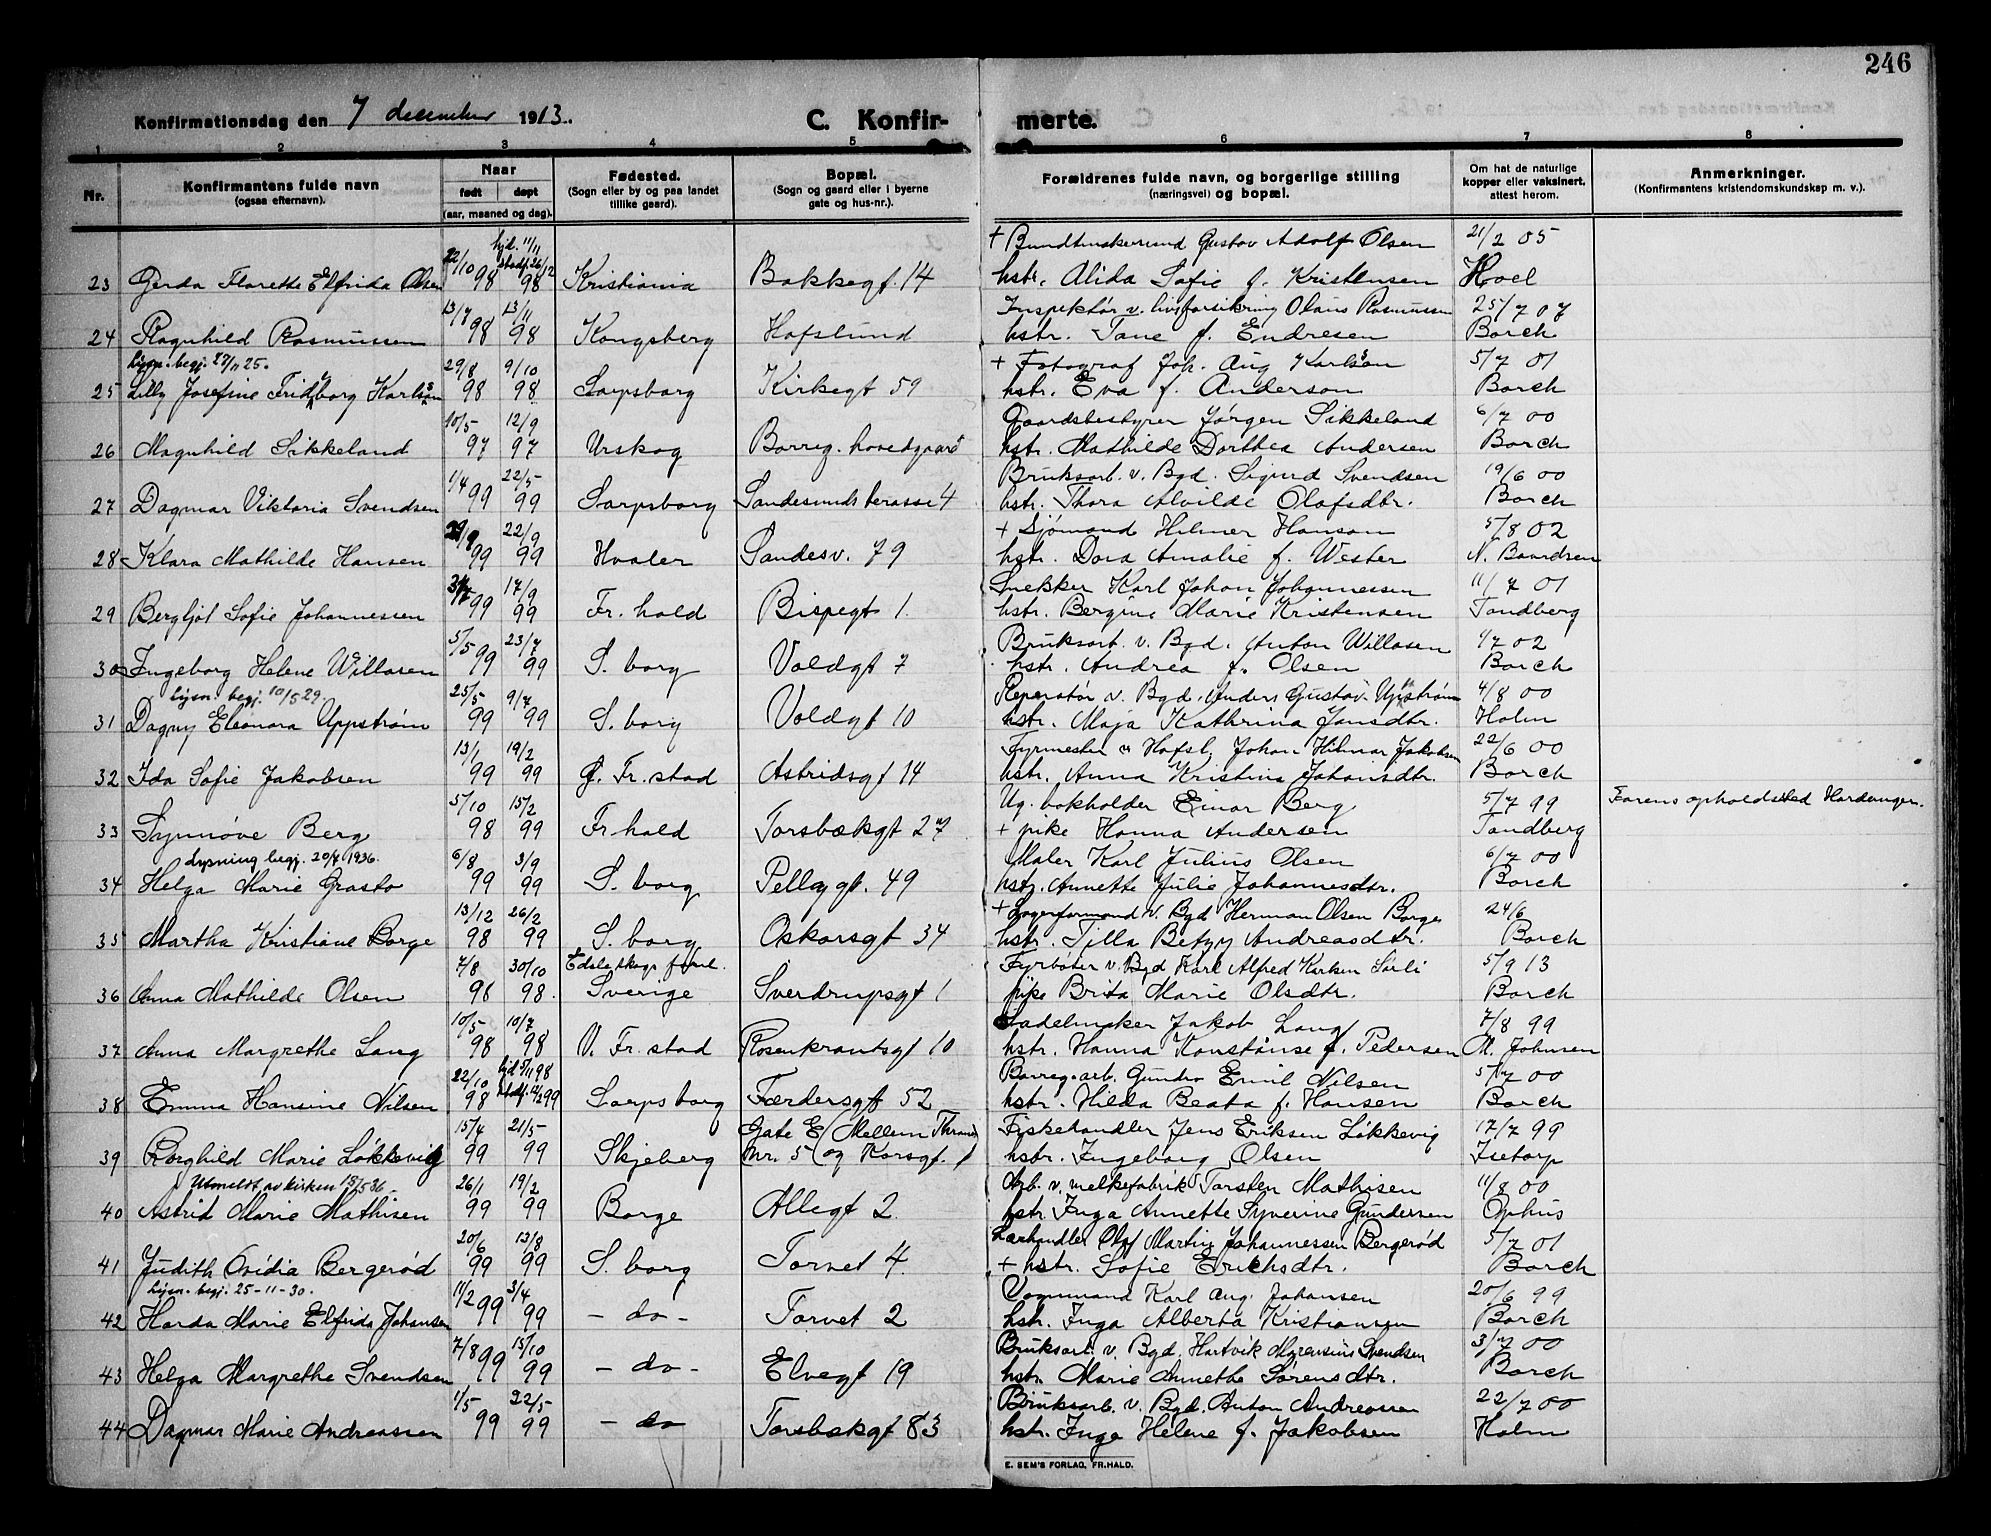 246
Konfirmationsdag den 7 december 1913.
C. Konfir-
merte.
1 2 3 4 5 6 7 8
Nr.
Konfirmantens fulde navn
(ogsaa efternavn).
Naar
født døpt
(aar, maaned og dag).
Fødested.
(Sogn eller by og paa landet
tillike gaard).
Bopæl.
(Sogn og gaard eller i byerne
gate og hus-nr.).
Forældrenes fulde navn, og borgerlige stilling
(næringsvei) og bopæl.
Om hat de naturlige
kopper eller vaksinert,
attest herom.
Anmerkninger.
(Konfirmantens kristendomskundskap m. v.).
22/10 hjd. 11/11 stadf. 26/12 + Bundtmakersvend Gustav Adolf Olsen 21/2 05
23 Gerda Florette Elfrida Olsen 98 98 Kristiania Bakkegt. 14 hstr. Alida Sofie f. Kristensen Hoel
13/7 13/11 Inspektør v. livsforsikring Olaus Rasmussen 25/7 07
24 Ragnhild Rasmussen 98 98 Kongsberg Hafslund hstr. Tane f. Endresen Borch
Lysn. begj. 27/11 25. 29/8 9/10 + Fotograf Joh. Aug Karlson 5/7 01
25 Lilly Josefine Fridborg Karlson 98 98 Sarpsborg Kirkegt 59 hstr. Eva f. Anderson Borch
10/5 12/9 Gaardsbestyrer Jørgen Sikkeland 6/7 00
26 Magnhild Sikkeland 97 97 Urskog Borreg. hovedgaard hstr. Mathilde Dorthea Andersen Borch
1/4 22/5 Bruksarb. v. Bgd. Sigurd Svendsen 19/6 00
27 Dagmar Viktoria Svendsen 99 99 Sarpsborg Sandesunds terasse 4 hstr. Thora Alvilde Olafsdtr. Borch
22/9 + Sjømand Hilmer Hansen 5/8 02
28 Klara Mathilde Hansen 99 99 Hvaler Sandesv. 79 hstr. Dora Amalie f. Wester N. Baardsen
17/9 Snekker Karl Johan Johannessen 11/7 01
29 Bergljot Sofie Johannessen 99 99 Fr. hald Bispegt 1. hstr. Bergine Marie Kristensen Tandberg
5/5 23/7 Bruksarb. v. Bgd. Anton Willasen 4/7 02
30 Ingeborg Helene Willasen 99 99 S. borg Voldgt 7 hstr. Andrea f. Olsen Borch
Lysn. begj. 10/5 29. 25/5 9/7 Reperatør v. Bgd. Anders Gustav Uppstrøm 4/8 00
31 Dagny Eleonora Uppstrøm 99 99 S. borg Voldgt 10 hstr. Maja Kathrina Jansdtr. Holm
13/1 19/2 Fyrmester v Hafsl. Johan Hilmar Jakobsen 22/6 00
32 Ida Sofie Jakobsen 99 99 G. Fr. stad Astridsgt 14 hstr. Anna Kristina Johansdtr. Borch
5/10 15/2 Ug. bokholder Einar Berg 5/7 99 Farens opholdsted Hardanger.
33 Synnøve Berg 98 99 Fr hald Torsbækgt 27 + pike Hanna Andersen Tandberg
Lysning begj. 20/4 1936. 6/8 3/9 Maler Karl Julius Olsen 6/7 00
34 Helga Marie Grasto 99 99 S. borg Pellygt. 49 hstr. Annette Julie Johannesdtr. Borch
13/12 26/2 + Lagerformand v. Bgd Herman Olsen Borge 24/6
35 Martha Kristiane Borge 98 99 S. borg Oskarsgt 34 hstr. Tilla Betzy Andreasdtr. Borch
7/8 30/10 Fyrbøter v. Bgd Karl Alfred 5/9 13
36 Anna Mathilde Olsen 98 98. Sverige Sverdrupsgt 1 pike Brita Marie Olsdtr. Borch
10/5 10/7 Sadelmaker Jakob Lang 7/8 99
37 Anna Margrethe Lang 98 98 V. Fr. stad Rosenkrantsgt 10 hstr. Hanna Konstanse f. Pedersen M. Johnsen
22/10 98 Borreg. arb. Gundro Emil Nilsen 5/7 00
38 Emma Hansine Nilsen 98 99 Sarpsborg Færdersgt 52 hstr. Hilda Beata f. Hansen Borch
15/4 21/5 Gate E (Mellem Fiskehandler Jens Eriksen Løkkevig 17/7 99
39 Borghild Marie Løkkevig 99 99 Skjeberg nr. 5 og Korsgt.) hstr. Ingeborg Olsen Isetorp
Utmeldt av kirken 18/5 36 26/1 19/2 Arb. v. melkefabrik Torsten Mathisen 11/8 00
40 Astrid Marie Mathisen 99 99 Borge Allegt 2. hstr. Inga Annette Syverine Gundersen Ophus
20/6 13/8 Lærhandler Olaf Martin Johannessen Bergerød 5/7 01
41 Judith Ovidia Bergerød 99 99 S. borg Torvet 4. + hstr. Sofie Erichsdtr. Borch
Lysn. begj. 25-11-30. 11/2 3/4 Vognmand Karl Aug. Johansen 20/6 99
42 Harda Marie Elfrida Johansen 99 99 - do - Torvet 2 hstr. Inga Alberta Kristiansen Borch
7/8 15/10 Bruksarb. v. Bgd. Hartvik Svendsen 3/7 00
43 Helga Margrethe Svendsen 99 99 - do - Elvegt 19 hstr. Marie Annethe Sørensdtr. Borch
1/5 22/5 Bruksarb. v. Bgd. Anton Andreassen 22/7 00
44 Dagmar Marie Andreassen 99 99 - do Torsbækgt 83 hstr. Inga Helene f. Jakobsen Holm
E. SEM'S FORLAG, FR.HALD.